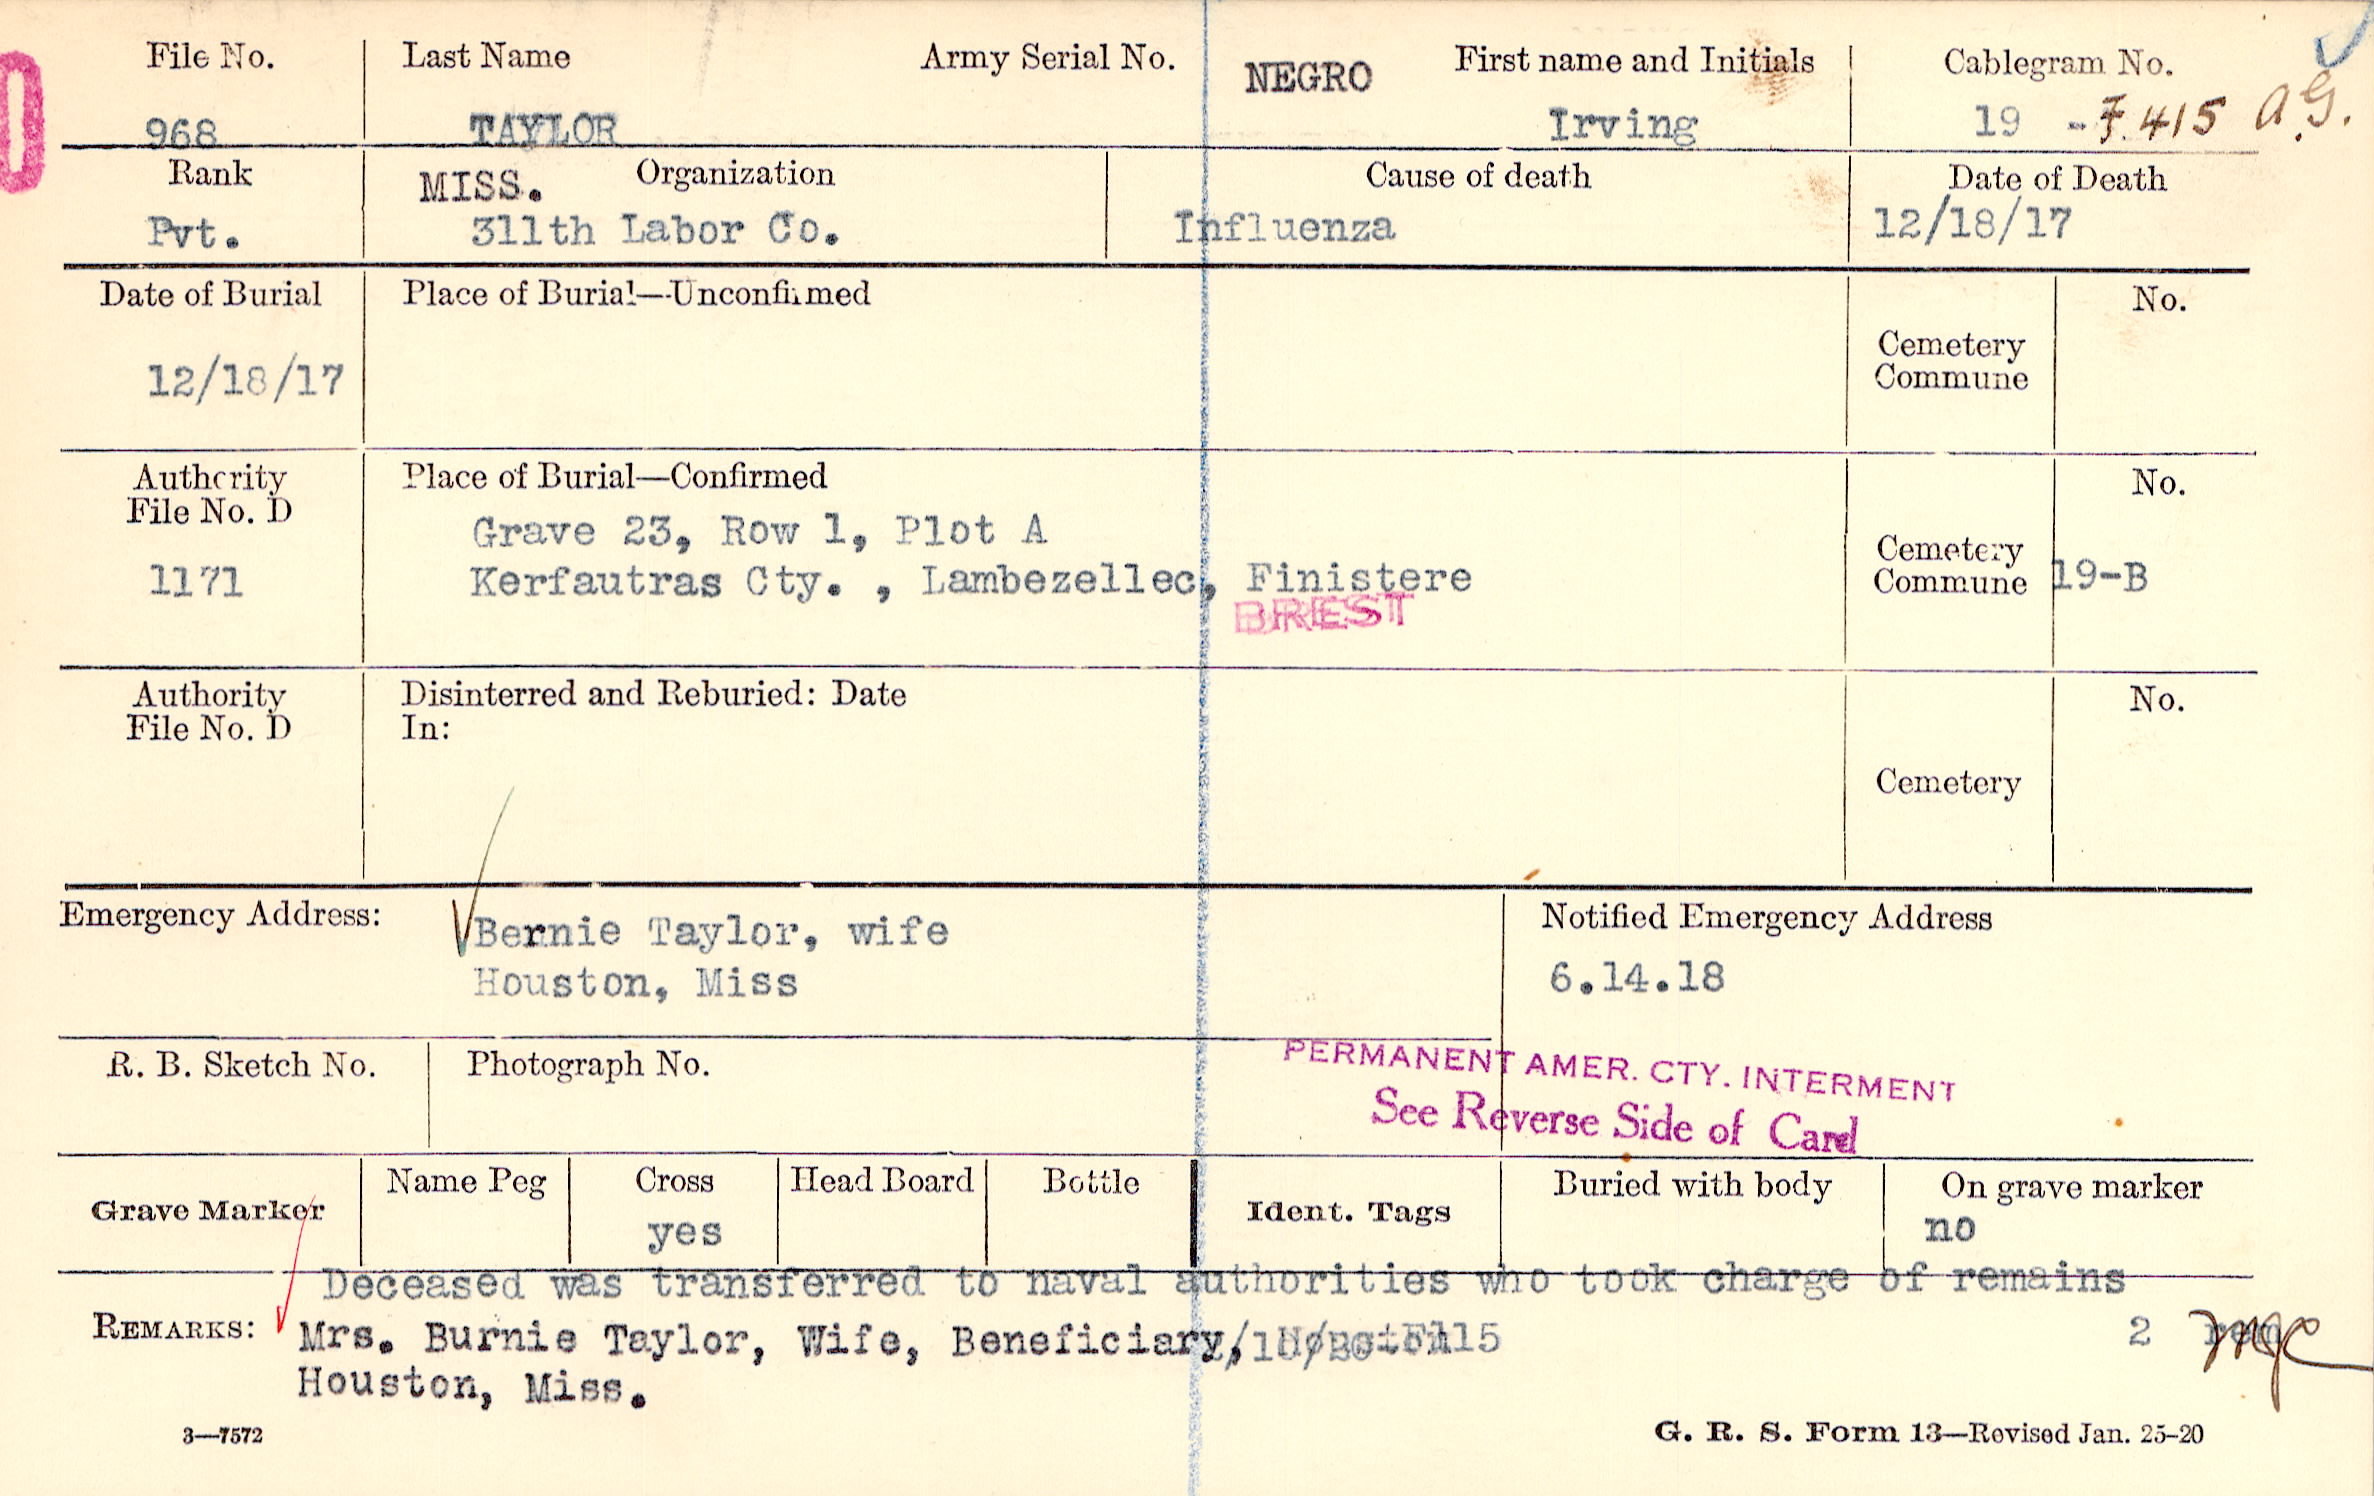 File No.
Last Name
Army Serial No.
NEGRO
First name and Initials
Cablegram No.
968
TAYLOR
Irving
19 - F.415 A.G.
Rank
MISS.
Organization
Cause of death
Date of Death
Pvt.
311th Labor Co.
Influenza
12/18/17
Date of Burial
Place of Burial—Unconfirmed
No.
Cemetery
Commune
12/18/17
Authority
File No. D
Place of Burial—Confirmed
No.
Grave 23, Row 1, Plot A
1171
Kerfautras Cty. , Lambezellec, Finistere
Cemetery
Commune
19-B
BREST
Authority
File No. D
Disinterred and Reburied: Date
In:
No.
Cemetery
Emergency Address:
Bernie Taylor, wife
Houston, Miss
Notified Emergency Address
6.14.18
R. B. Sketch No.
Photograph No.
PERMANENT AMER. CTY. INTERMENT
See Reverse Side of Card
Grave Marker
Name Peg
Cross
yes
Head Board
Bottle
Ident. Tags
Buried with body
On grave marker
no
Deceased was transferred to naval authorities who took charge of remains
REMARKS:
Mrs. Burnie Taylor, Wife, Beneficiary,
2
Houston, Miss.
3—7572
G. R. S. Form 13—Revised Jan. 25-20